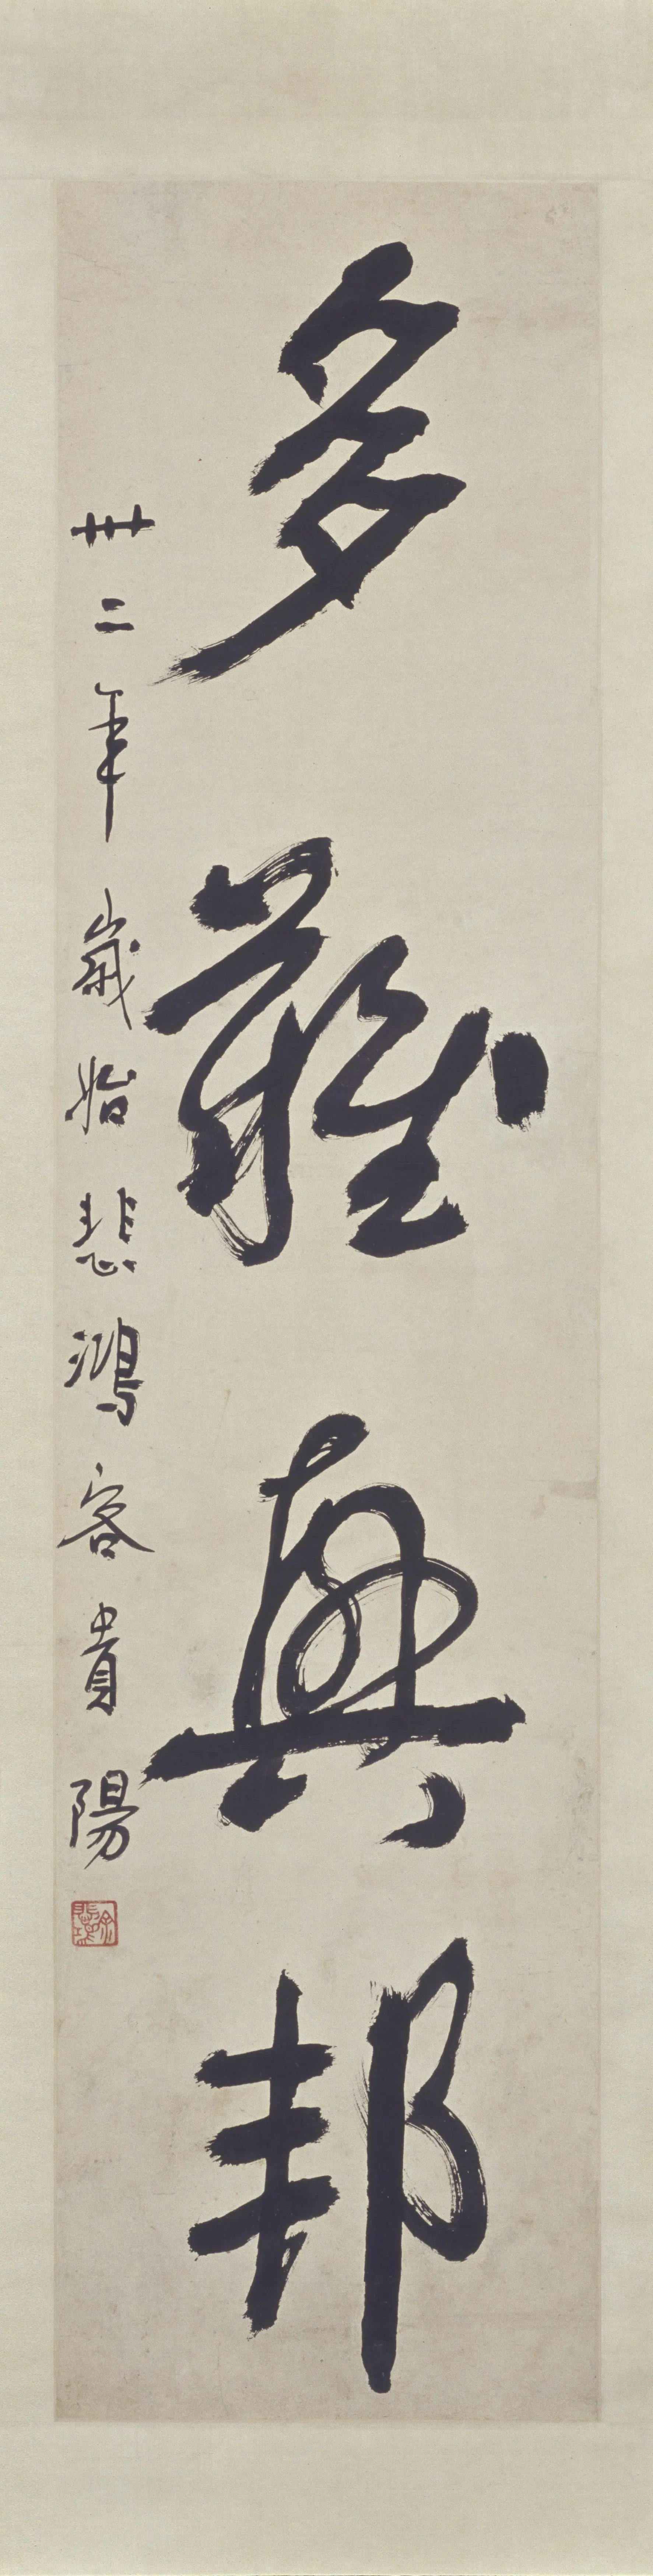 多難興邦
卅二年歲始悲鴻客貴陽
徐悲鴻